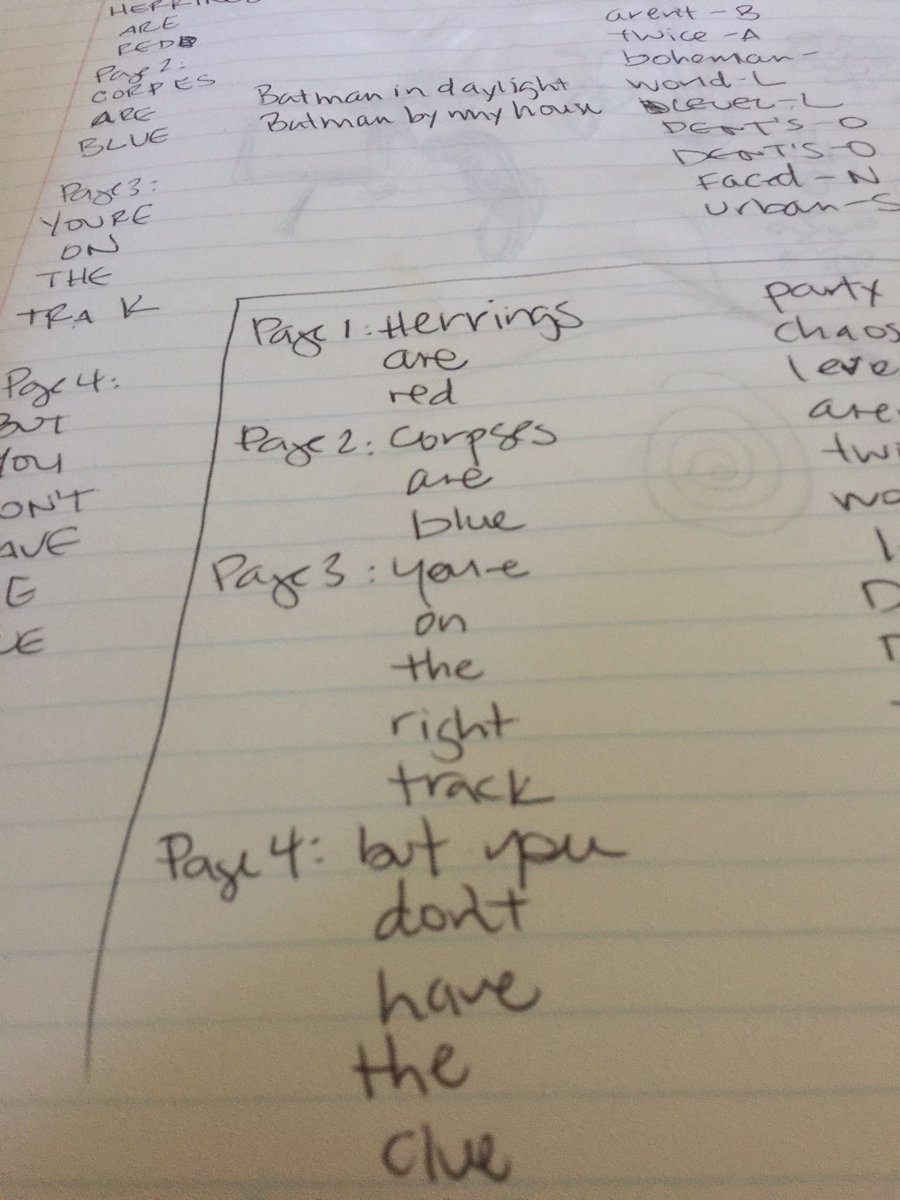 HERRINGS
ARE
RED
Page 2:
CORPES
ARE
BLUE
Page 3:
YOURE
ON
THE
TRA K
Page 4:
BUT
YOU
ON'T
AVE
E
UE
Batman in daylight
Batman by my house
arent - B
twice - A
boheman -
world - L
clever - L
DENT'S - O
DENT'S - O
Faced - N
urban - S
Page 1: Herrings
are
red
Page 2: Corpses
are
blue
Page 3: you're
on
the
right
track
Page 4: but you
don't
have
the
clue
party
chaos
leve
are
twi
wo